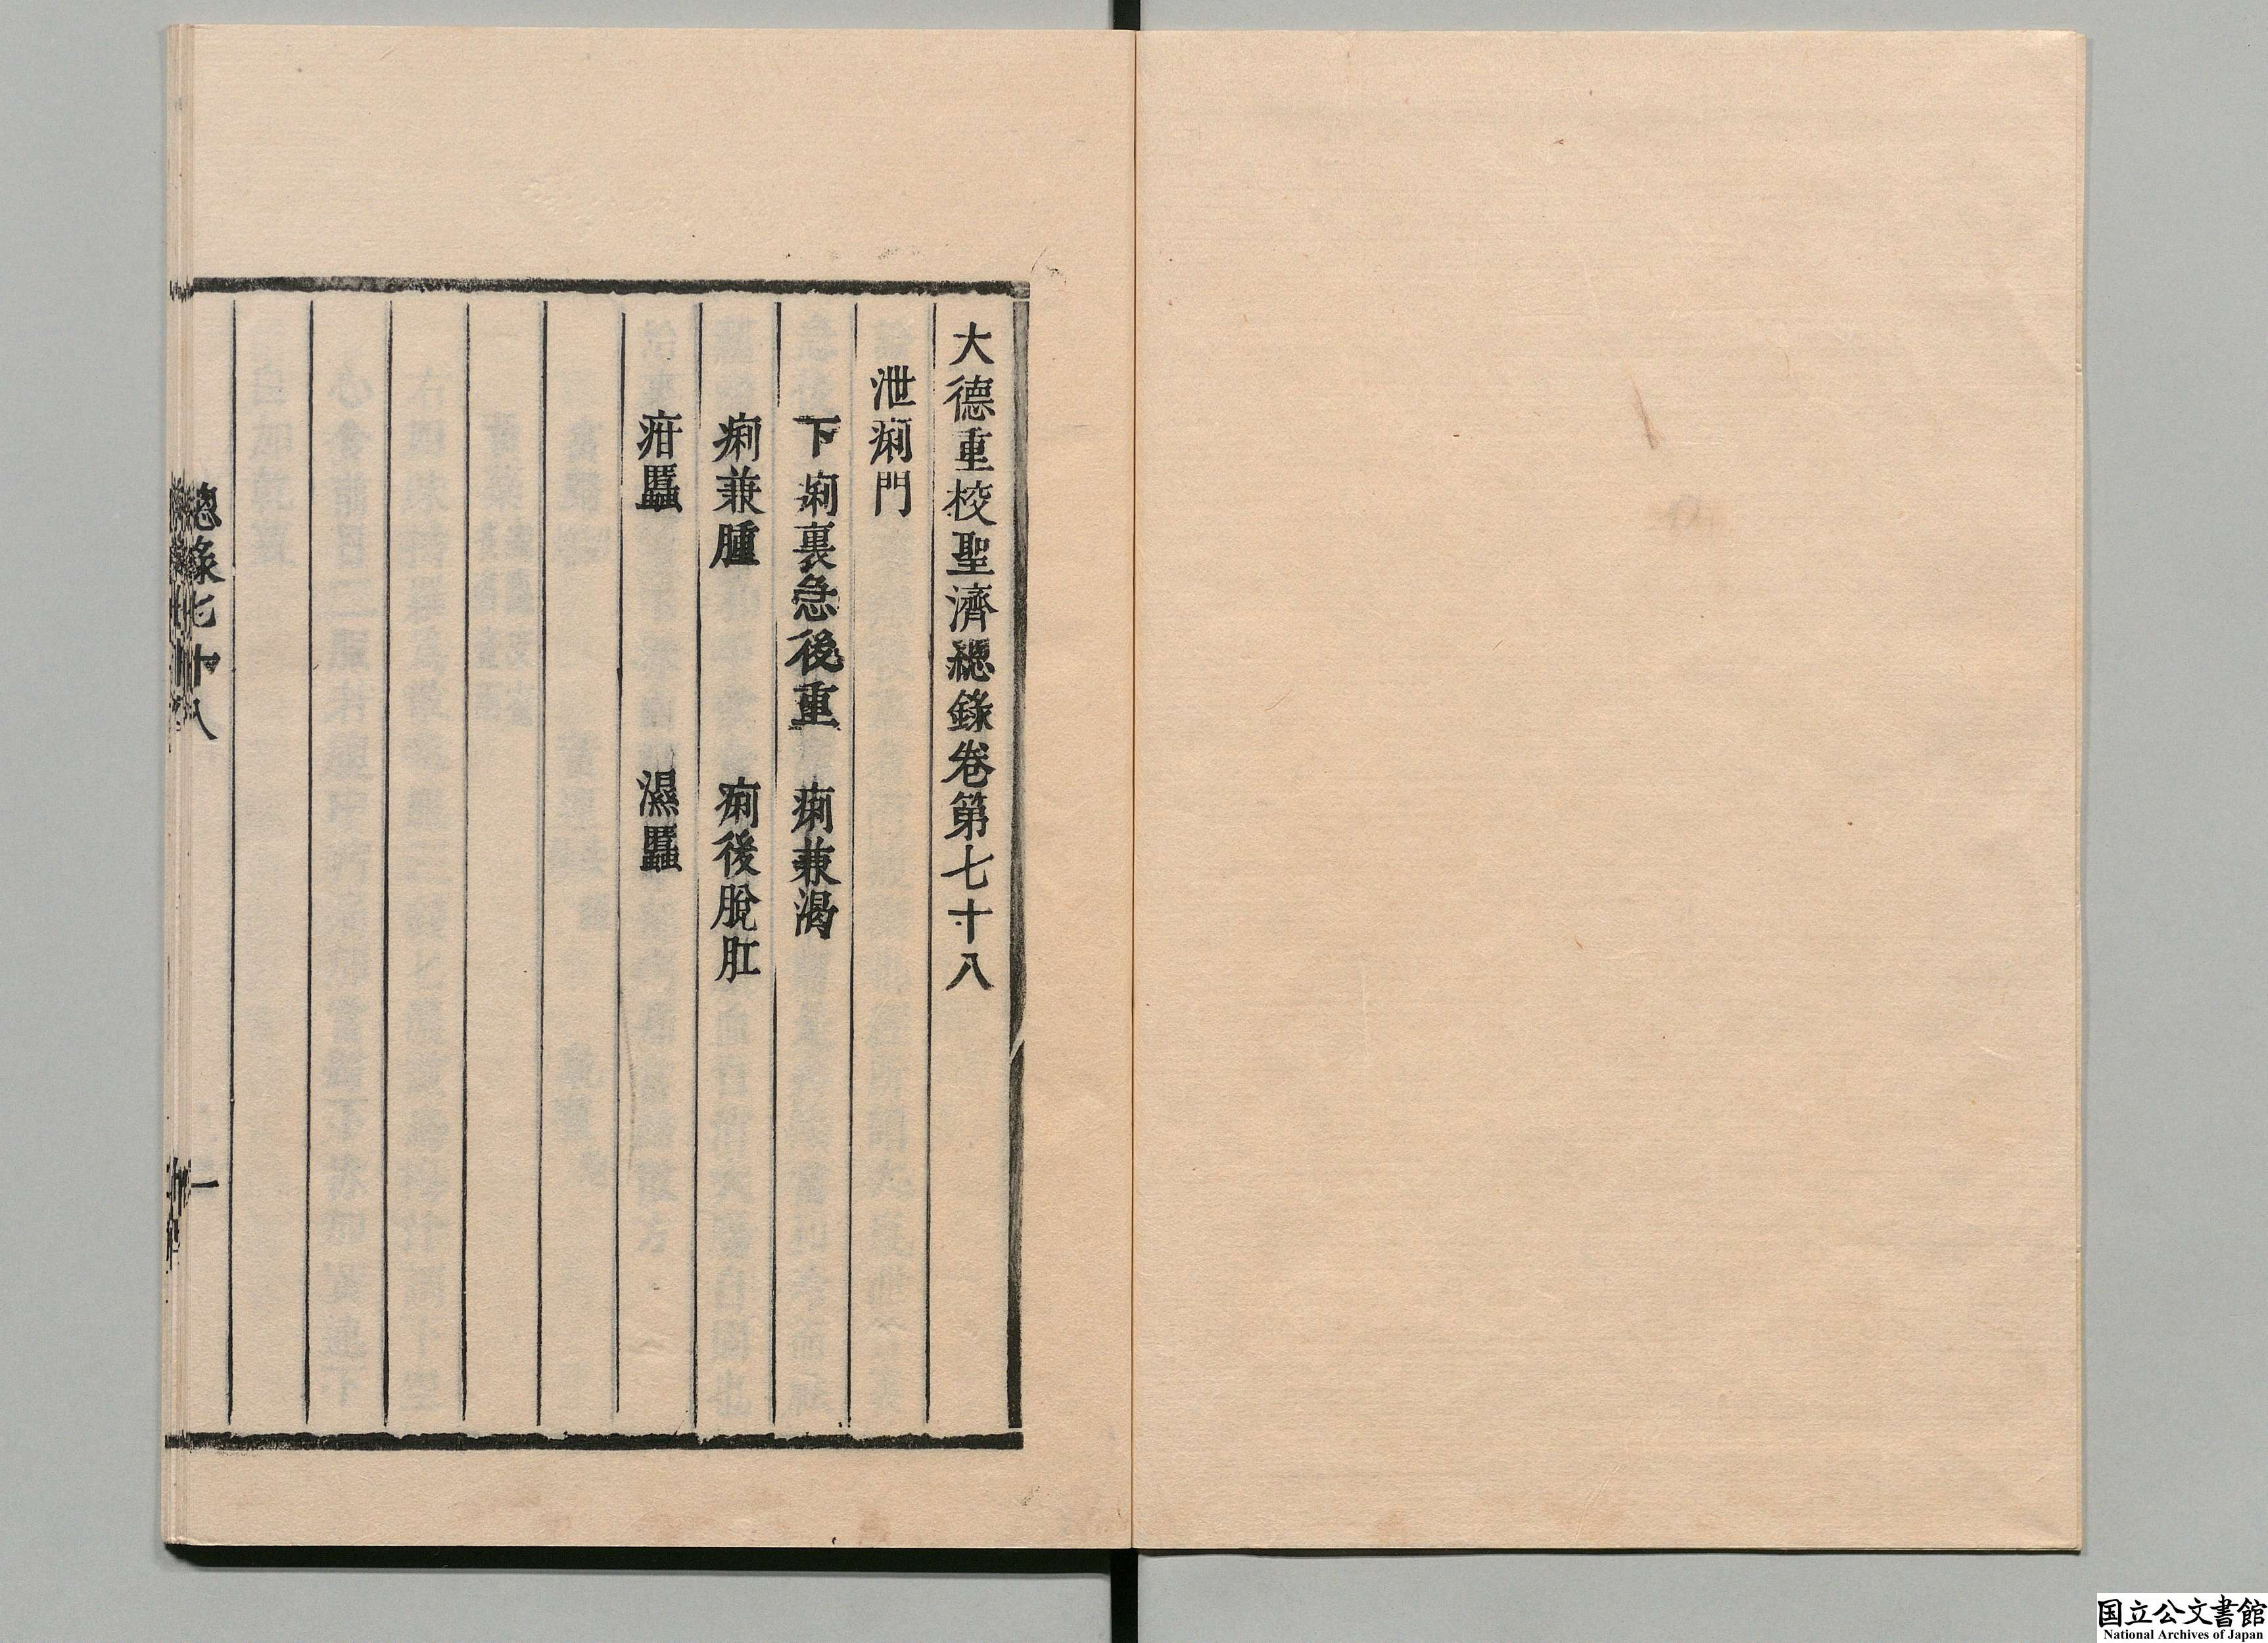 大德重校聖濟總錄卷第七十八
泄痢門
下痢裏急後重　痢兼渴
痢兼腫　痢後脫肛
疳䘌　濕䘌
總錄七十八　一
国立公文書館
National Archives of Japan